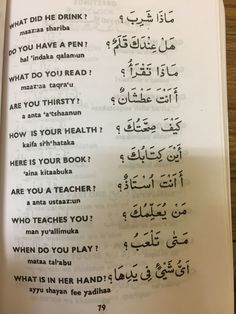 WHAT DID HE DRINK ? مَاذَا شَرِبَ ؟
maaz:aa shariba
DO YOU HAVE A PEN ? هَلْ عِنْدَكَ قَلَمٌ ؟
hal 'indaka qalamun
WHAT DO YOU READ ? مَاذَا تَقْرَأُ ؟
maaz:aa taqra'u
ARE YOU THIRSTY ? أَ أَنْتَ عَطْشَانٌ ؟
a anta 'a'tshaanun
HOW IS YOUR HEALTH ? كَيْفَ صِحَّتُكَ ؟
kaifa sìh'hataka
HERE IS YOUR BOOK ? أَيْنَ كِتَابُكَ ؟
'aina kitaabuka
ARE YOU A TEACHER ? أَ أَنْتَ اُسْتَاذٌ ؟
a anta ustaaz:un
WHO TEACHES YOU ? مَنْ يُعَلِّمُكَ ؟
man yu'allimuka
WHEN DO YOU PLAY ? مَتٰى تَلْعَبُ ؟
mataa tal'abu
WHAT IS IN HER HAND ? أَىُّ شَيْئٍ فِى يَدِهَا ؟
ayyu shayan fee yadihaa
79